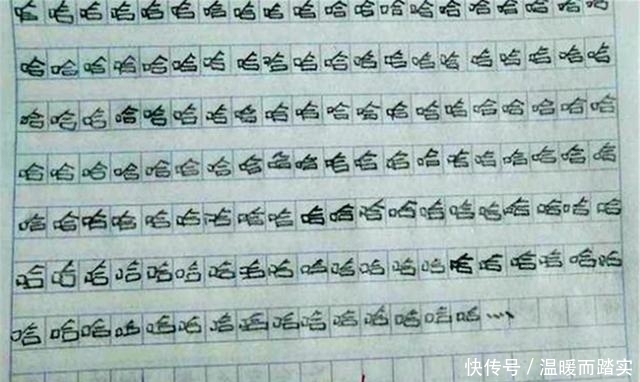 哈哈哈哈哈哈哈哈哈哈哈哈哈哈哈哈哈哈哈哈
哈哈哈哈哈哈哈哈哈哈哈哈哈哈哈哈哈哈哈哈
哈哈哈哈哈哈哈哈哈哈哈哈哈哈哈哈哈哈哈哈
哈哈哈哈哈哈哈哈哈哈哈哈哈哈哈哈哈哈哈哈
哈哈哈哈哈哈哈哈哈哈哈哈哈哈哈哈哈哈哈哈
哈哈哈哈哈哈哈哈哈哈哈哈哈哈哈哈哈哈哈哈
哈哈哈哈哈哈哈哈哈哈哈哈哈哈哈....
快传号/温暖而踏实